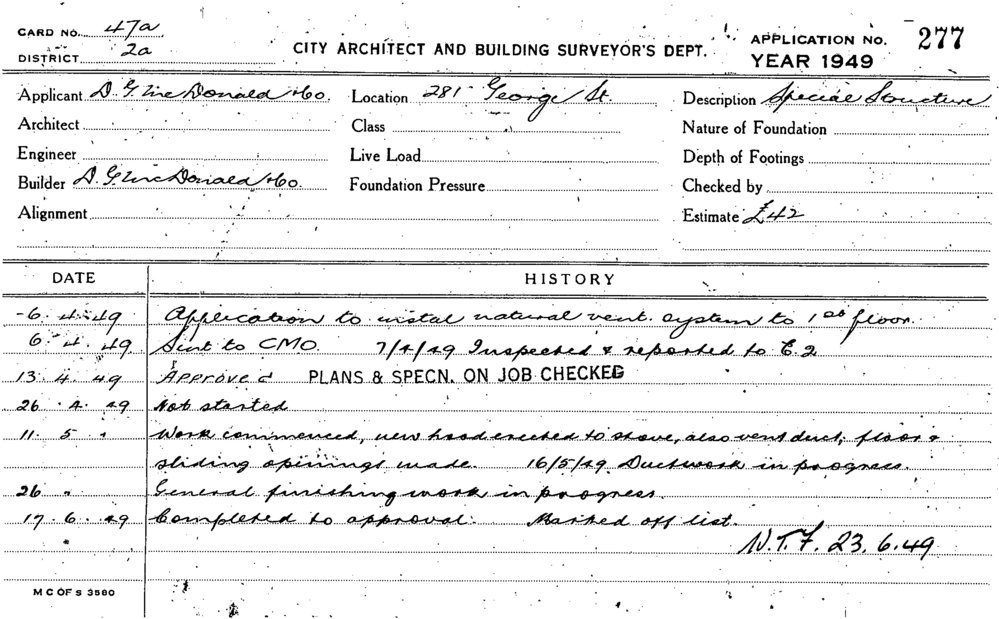 CARD NO. 47a
DISTRICT 2a
CITY ARCHITECT AND BUILDING SURVEYOR'S DEPT.
APPLICATION NO. 277
YEAR 1949
Applicant D. G. McDonald & Co. Location 281 George St. Description Special Structure
Architect Class Nature of Foundation
Engineer Live Load Depth of Footings
Builder D. G. McDonald & Co. Foundation Pressure Checked by
Alignment Estimate £42
DATE HISTORY
6. 4. 49 Application to instal natural vent. system to 1st floor.
6. 4. 49. Sent to CMO. 7/4/49 Inspected & reported to C.2
13. 4. 49 Approved PLANS & SPECN. ON JOB CHECKED
26. 4. 49 Not started
11. 5 " Work commenced, new hood erected to stove, also vent duct, floor &
sliding openings made. 16/5/49 Ductwork in progress.
26 " General finishing work in progress.
17. 6. 49 Completed to approval. Marked off list.
N.T.F. 23.6.49
M C OF S 3580